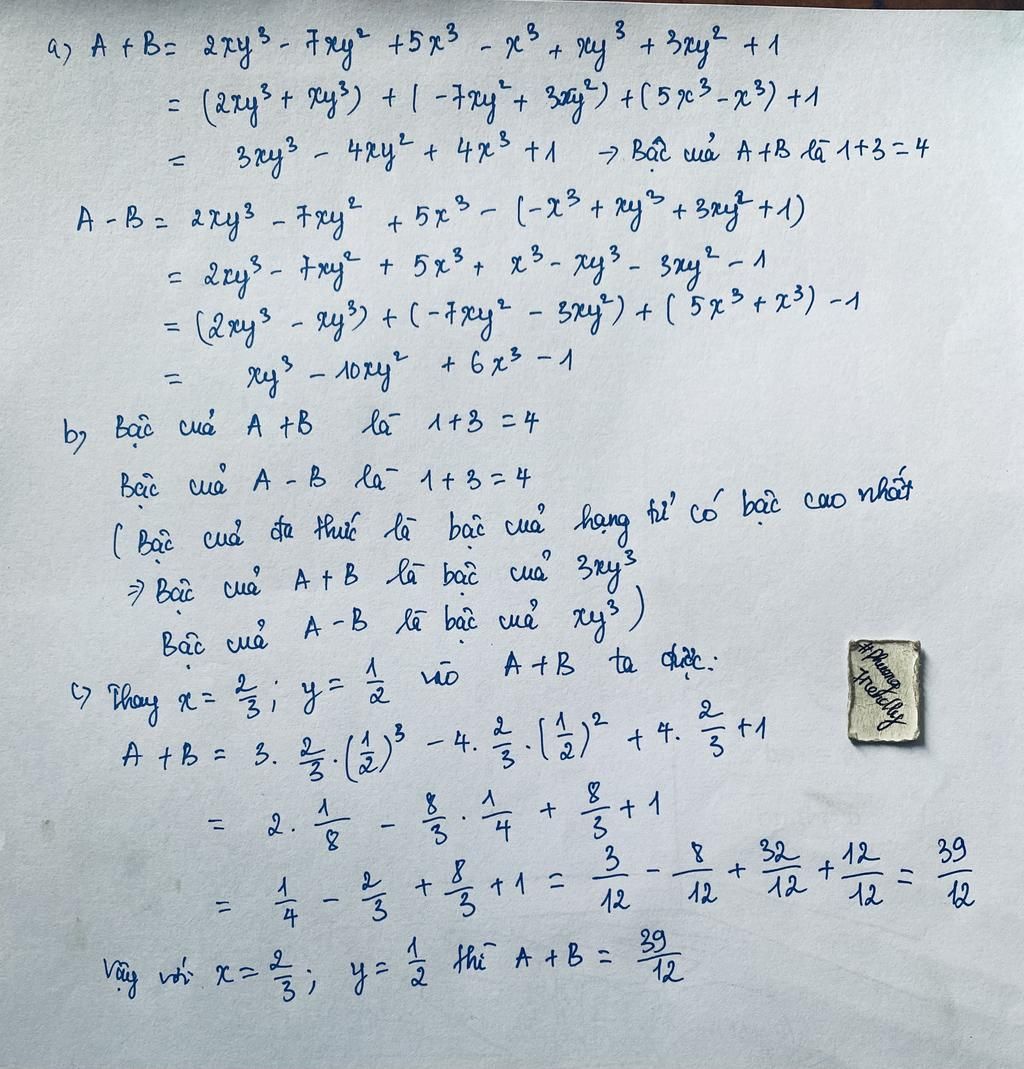 a) A + B = 2xy³ - 7xy² + 5x³ - x³ + xy³ + 3xy² + 1
= (2xy³ + xy³) + (-7xy² + 3xy²) + (5x³ - x³) + 1
= 3xy³ - 4xy² + 4x³ + 1 → Bậc của A+B là 1+3 = 4
A - B = 2xy³ - 7xy² + 5x³ - (-x³ + xy³ + 3xy² + 1)
= 2xy³ - 7xy² + 5x³ + x³ - xy³ - 3xy² - 1
= (2xy³ - xy³) + (-7xy² - 3xy²) + (5x³ + x³) - 1
= xy³ - 10xy² + 6x³ - 1
b) Bậc của A + B là 1+3 = 4
Bậc của A - B là 1+3 = 4
(Bậc của đa thức là bậc của hạng tử có bậc cao nhất
⇒ Bậc của A + B là bậc của 3xy³
Bậc của A - B là bậc của xy³)
c) Thay x = 2/3 ; y = 1/2 vào A + B ta được:
A + B = 3. 2/3 . (1/2)³ - 4. 2/3 . (1/2)² + 4. 2/3 + 1
= 2. 1/8 - 8/3 . 1/4 + 8/3 + 1
= 1/4 - 2/3 + 8/3 + 1 = 3/12 - 8/12 + 32/12 + 12/12 = 39/12
Vậy với x = 2/3 ; y = 1/2 thì A + B = 39/12
#Phuong